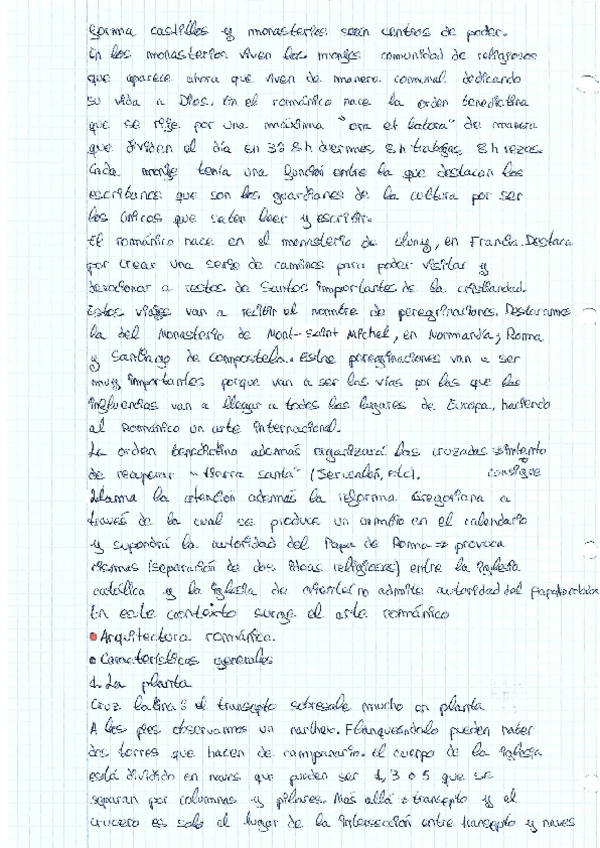 forma castillos y monasterios serán centros de poder.
En los monasterios viven los monjes comunidad de religiosos
que aparece ahora que viven de manera comunal dedicando
su vida a Dios. En el románico nace la orden benedictina
que se rige por una máxima "ora et labora" de manera
que dividen el día en 3: 8 h duermes, 8 h trabajas, 8 h rezas.
Cada monje tenía una función entre la que destacan los
escribanos que son los guardianes de la cultura por ser
los únicos que saben leer y escribir.
El románico nace en el monasterio de cluny, en Francia. Destaca
por crear una serie de caminos para poder visitar y
a restos de Santos importantes de la cristiandad.
Estos viajes van a recibir el nombre de peregrinaciones. Destacamos
la del Monasterio de Mont-Saint Michel, en Normandía; Roma
y Santiago de compostela. Estas peregrinaciones van a ser
muy importantes porque van a ser las vías por las que las
influencias van a llegar a todos los lugares de Europa, haciendo
al Románico un arte internacional.
La orden benedictina además organizará las cruzadas → intento
de recuperar "tierra santa" (Jerusalén, etc). consigue
Llama la atención además la reforma Gregoriana a
través de la cual se produce un cambio en el calendario
y supondrá la autoridad del Papa de Roma → provoca
cismas (separación de dos ideas religiosas) entre la iglesia
católica y la iglesia de oriente no admite autoridad del papa
En este contexto surge el arte románico
• Arquitectura románica.
• Características generales
1. La planta
Cruz latina: el transepto sobresale mucho en planta
A los pies observamos un narthex. Flanqueándolo pueden haber
dos torres que hacen de campanario. El cuerpo de la iglesia
está dividido en naves que pueden ser 1, 3 o 5 que se
separan por columnas y pilares. Más allá transepto y el
crucero es solo el lugar de la intersección entre transepto y naves